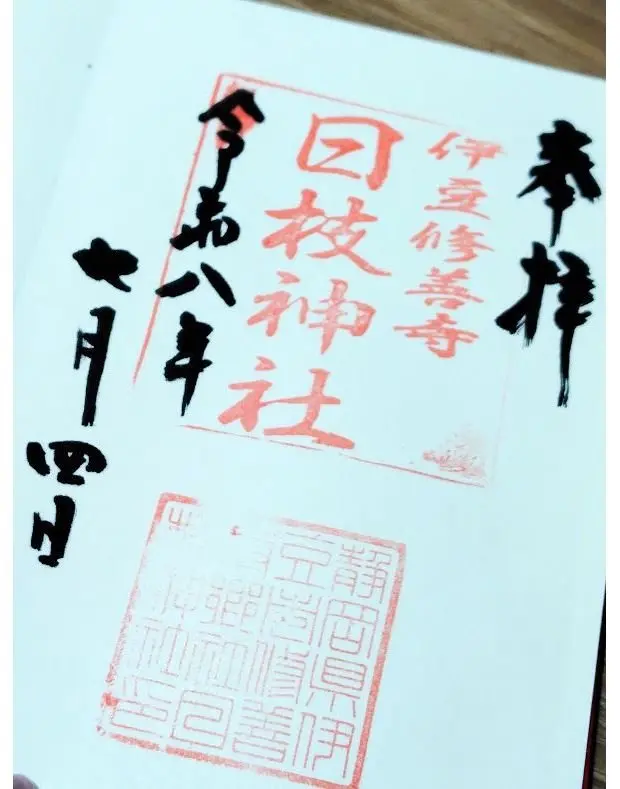 奉拝
伊豆修善寺
日枝神社
令和八年
七月四日
静岡県伊
修善
郷社日
神社印